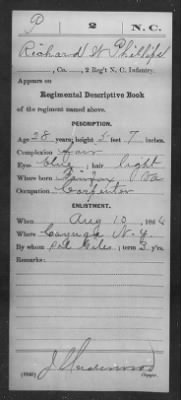 P 2 N. C.
Richard W Phillips
, Co. , 2 Reg't N. C. Infantry.
Appears on
Regimental Descriptive Book
of the regiment named above.
DESCRIPTION.
Age 28 years; height 5 feet 7 inches.
Complexion Fair
Eyes Blue ; hair light
Where born Fairfax Va
Occupation Carpenter
ENLISTMENT.
When Aug 10 , 186
Where Cayuga N. Y.
By whom ; term 3 y'rs.
Remarks:
J Underwood
Copyist.